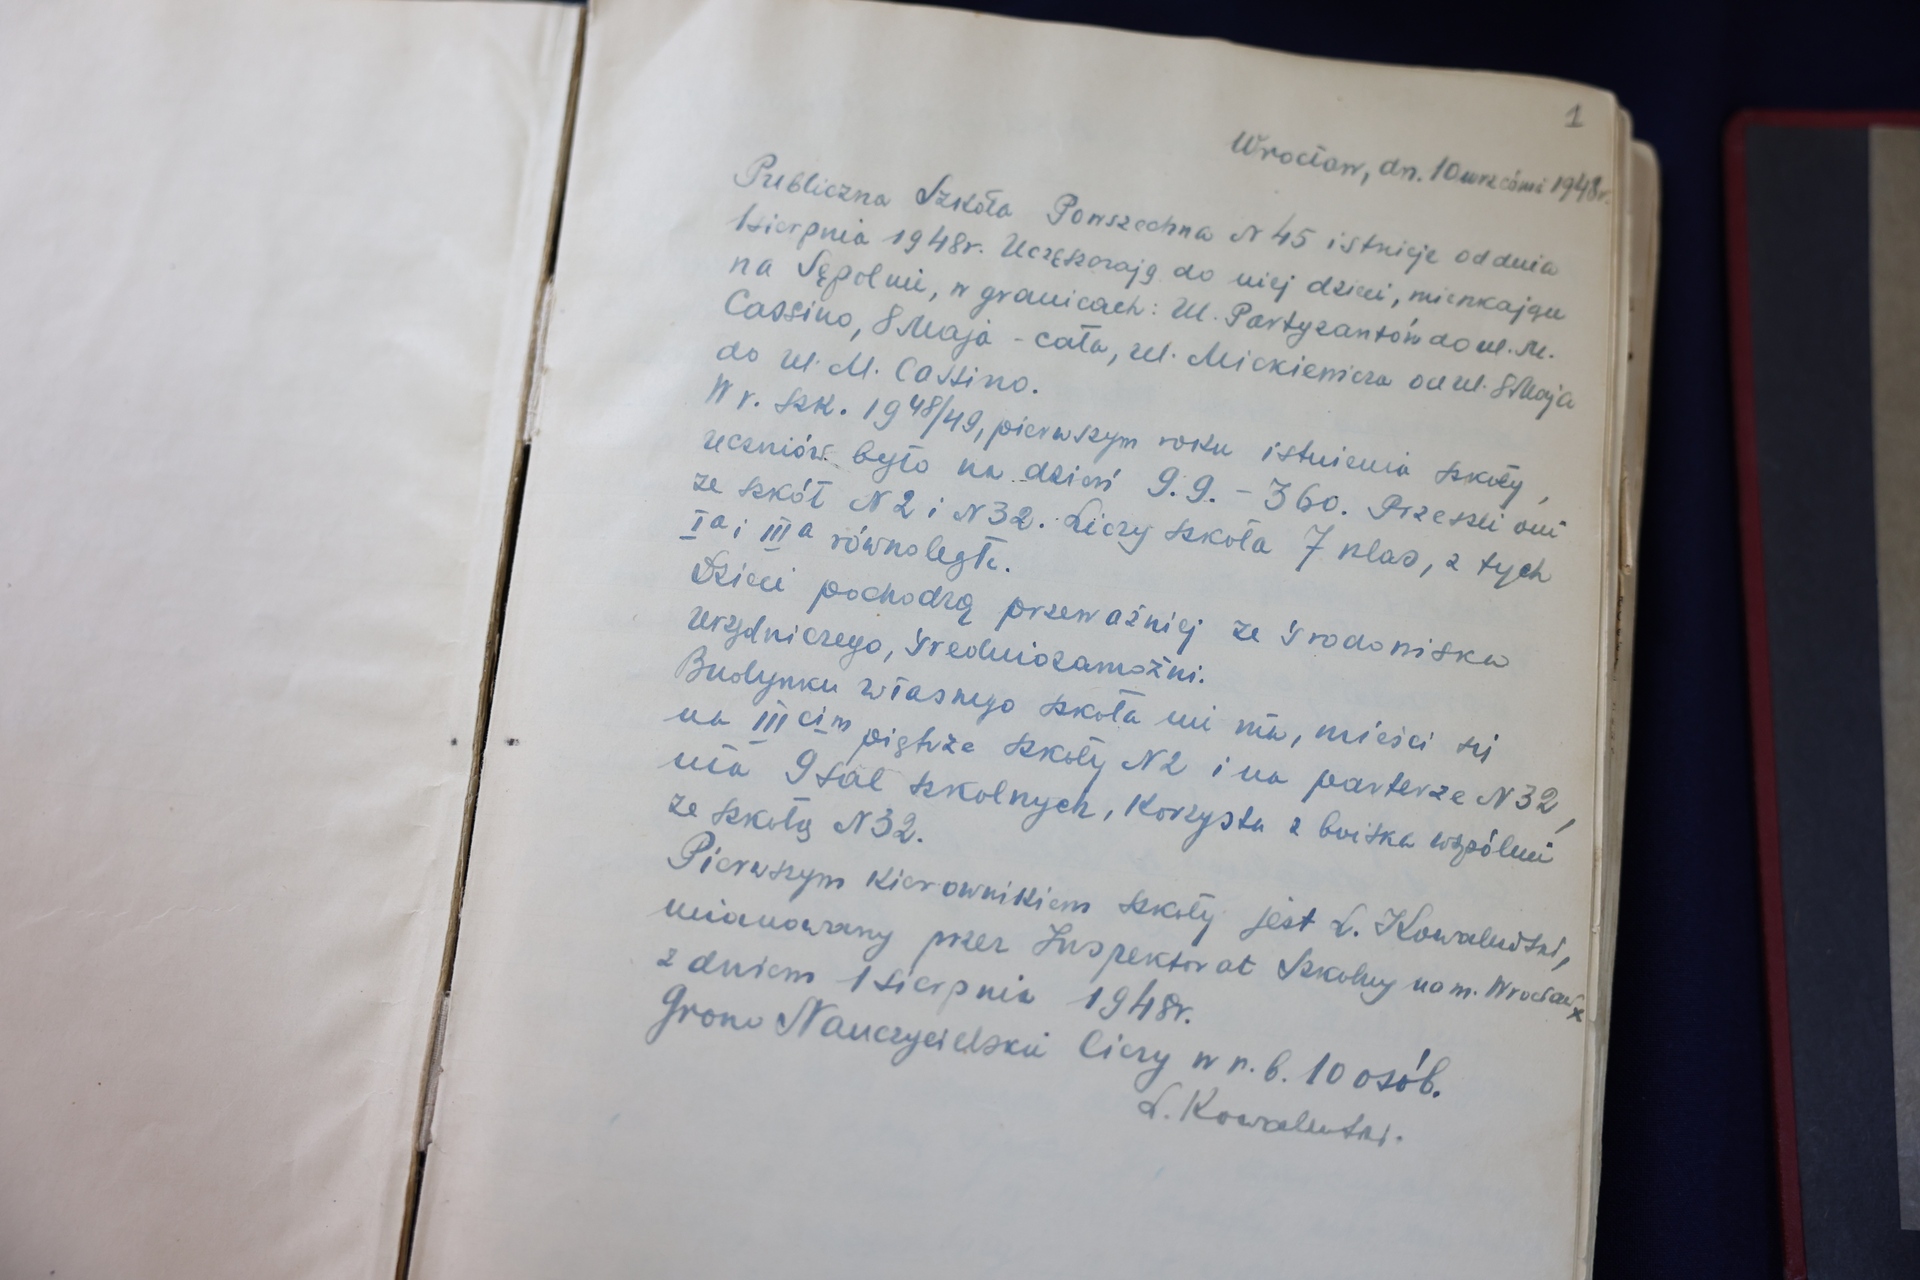 1
Wrocław, dn. 10 września 1948r.
Publiczna Szkoła Powszechna N 45 istnieje od dnia
1 sierpnia 1948r. Uczęszczają do niej dzieci, mieszkające
na Sępolnie, w granicach: ul. Partyzantów do ul. M.
Cassino, 8 Maja - cała, ul. Mickiewicza od ul. 8 Maja
do ul. M. Cassino.
W r. szk. 1948/49, pierwszym roku istnienia szkoły,
uczniów było na dzień 9.9. - 360. Przeszli oni
ze szkół N 2 i N 32. Liczy szkoła 7 klas, z tych
Ia i IIIa równoległe.
Dzieci pochodzą przeważniej ze środowiska
urzędniczego, średniozamożni.
Budynku własnego szkoła nie ma, mieści się
na IIIcim piętrze szkoły N 2 i na parterze N 32,
ma 9 sal szkolnych, korzysta z boiska wspólnie
ze szkołą N 32.
Pierwszym kierownikiem szkoły jest L. Kowalewski,
mianowany przez Inspektorat Szkolny na m. Wrocław
z dniem 1 sierpnia 1948r.
Grono Nauczycielskie liczy w r. b. 10 osób.
L. Kowalewski.